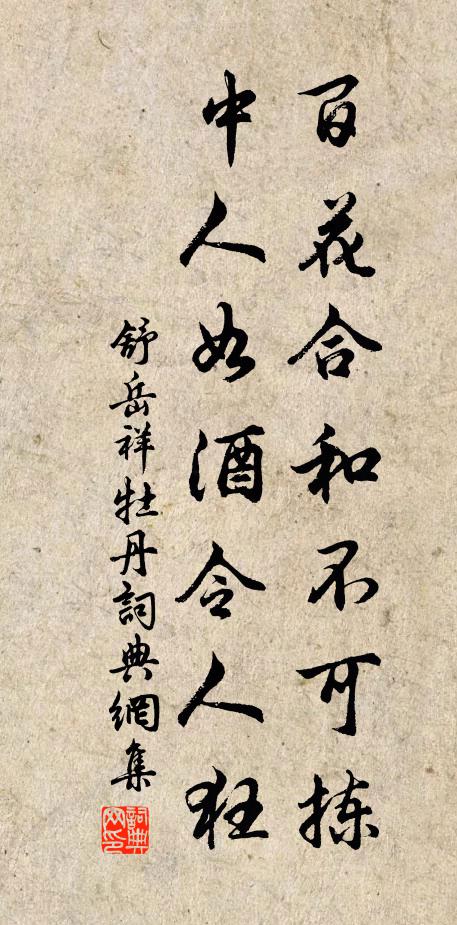 百花合和不可拣
中人如酒令人狂
舒岳祥牡丹詞典網集
詞典網印